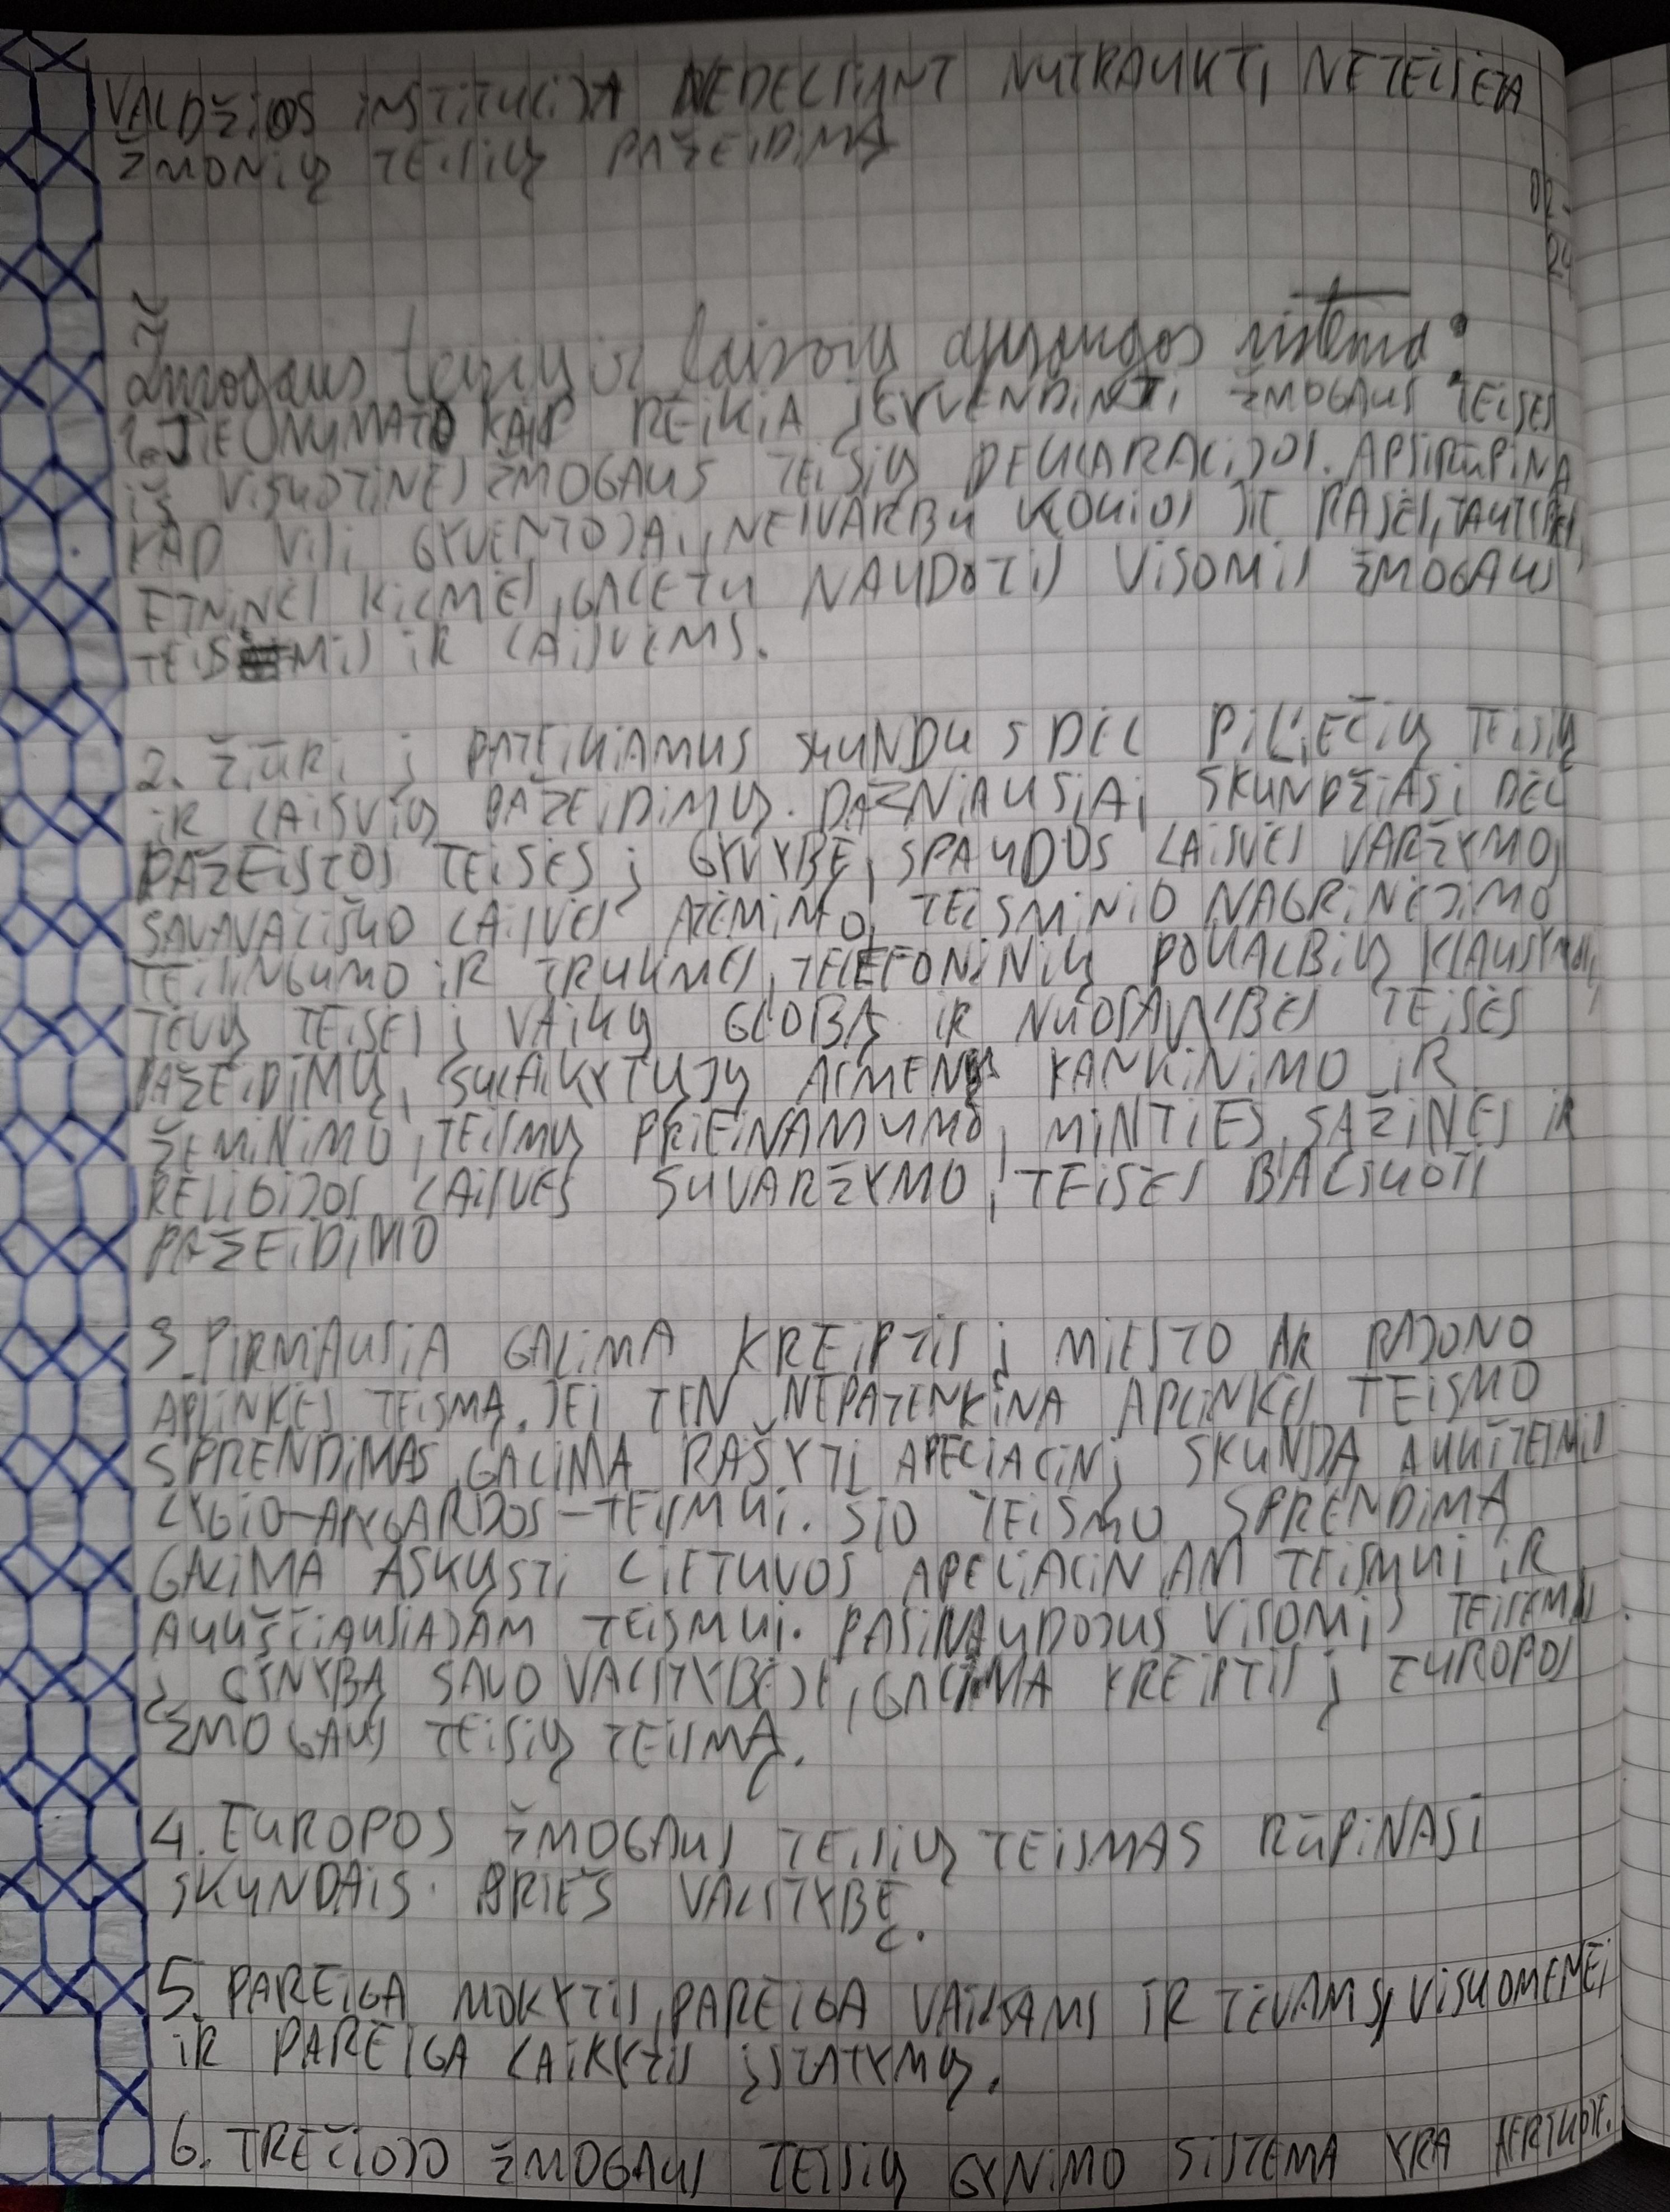 VALDŽIOS INSTITUCIJA NEDELSIANT NUTRAUKTI NETEISĖTA
ŽMONIŲ TEISIŲ PAŽEIDIMĄ
02-
24
Žmogaus teisių ir laisvių apsaugos sistema
1. JIE NUMATO KAIP REIKIA ĮGYVENDINTI ŽMOGAUS TEISES
IŠ VISUOTINĖS ŽMOGAUS TEISIŲ DEKLARACIJOS. APSIRŪPINA
KAD VISI GYVENTOJAI, NESVARBU KOKIOS JIE RASĖS, TAUTYBĖS,
ETNINĖS KILMĖS, GALĖTU NAUDOTIS VISOMIS ŽMOGAUS
TEISĖMIS IR LAISVĖMS.
2. ŽIŪRI Į PATEIKIAMUS SKUNDUS DĖL PILIEČIŲ TEISIŲ
IR LAISVIŲ PAŽEIDIMŲ. DAŽNIAUSIAI SKUNDŽIASI DĖL
PAŽEISTOS TEISĖS Į GYVYBĘ, SPAUDOS LAISVĖS VARŽYMO,
SAVAVALIŠKO LAISVĖS ATĖMIMO, TEISMINIO NAGRINĖJIMO
TEISINGUMO IR TRUKMĖS, TELEFONINIŲ POKALBIŲ KLAUSYMOSI,
TĖVŲ TEISĖS Į VAIKŲ GLOBĄ IR NUOSAVYBĖS TEISĖS
PAŽEIDIMŲ, SULAIKYTŲJŲ ASMENŲ KANKINIMO IR
ŽEMINIMO, TEISMŲ PRIEINAMUMO, MINTIES, SĄŽINĖS IR
RELIGIJOS LAISVĖS SUVARŽYMO, TEISĖS BALSUOTI
PAŽEIDIMO
3. PIRMIAUSIA GALIMA KREIPTIS Į MIESTO AR RAJONO
APLINKĖS TEISMĄ. JEI TEN NEPATENKINA APLINKĖS TEISMO
SPRENDIMAS, GALIMA RAŠYTI APELIACINĮ SKUNDĄ AUKŠTESNIO
LYGIO-APYGARDOS-TEISMUI. ŠIO TEISMO SPRENDIMĄ
GALIMA ASKŲSTI LIETUVOS APELIACINIAM TEISMUI IR
AUKŠČIAUSIAJAM TEISMUI. PASINAUDOJUS VISOMIS TEISĖMIS
Į GYNYBĄ SAVO VALSTYBĖJE, GALIMA KREIPTIS Į EUROPOS
ŽMOGAUS TEISIŲ TEISMĄ.
4. EUROPOS ŽMOGAUS TEISIŲ TEISMAS RŪPINASI
SKUNDAIS PRIEŠ VALSTYBĘ.
5. PAREIGA MOKYTIS, PAREIGA VAIKAMS IR TĖVAMS, VISUOMENEI
IR PAREIGA LAIKYTIS ĮSTATYMŲ.
6. TREČIOJO ŽMOGAUS TEISIŲ GYNIMO SISTEMA YRA